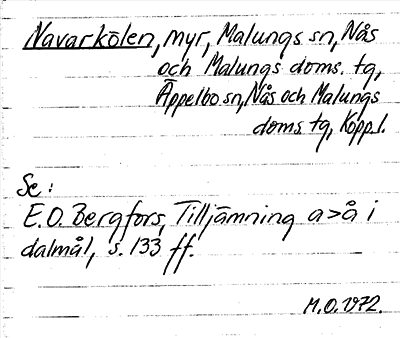 Navarkölen, myr, Malungs sn, Nås
och Malungs doms. tg,
Äppelbo sn, Nås och Malungs
doms tg, Kopp. l.
Se:
E.O. Bergfors, Tilljämning a>å i
dalmål, s. 133 ff.
M.O. 1972.